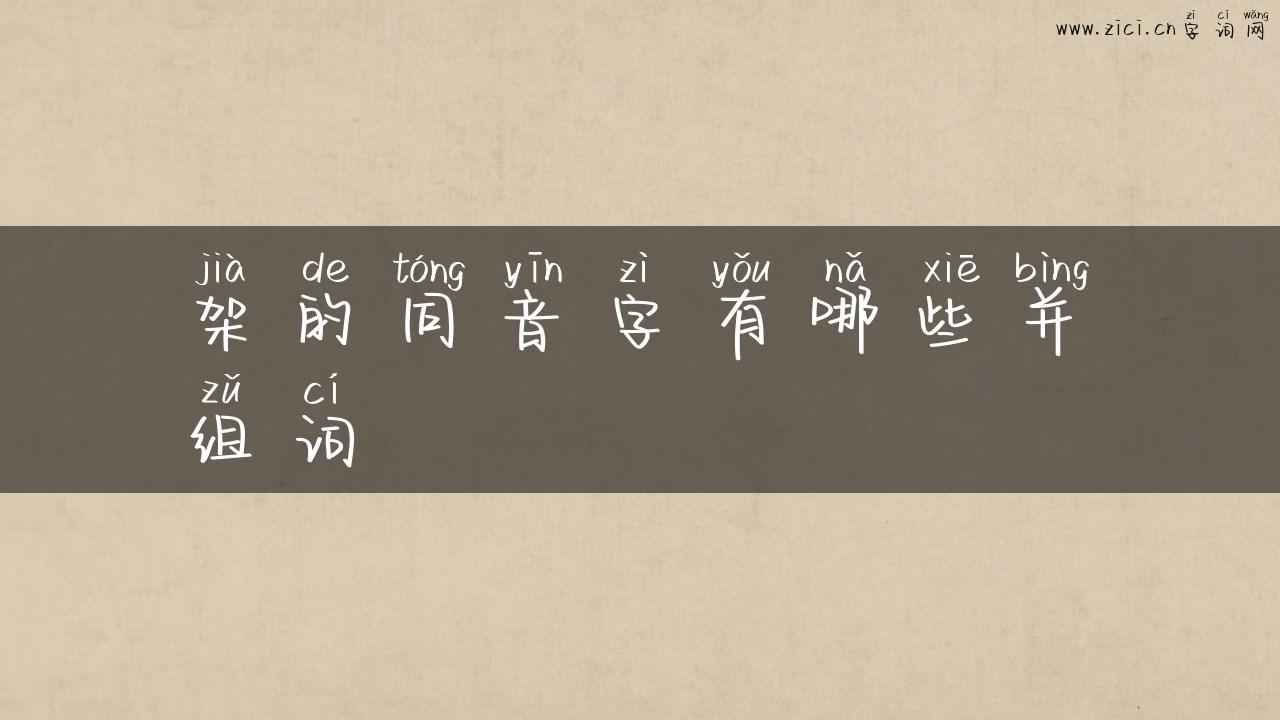 zì cí wǎng
www.zici.cn 字词网
jià de tóng yīn zì yǒu nǎ xiē bìng
架的同音字有哪些并
zǔ cí
组词